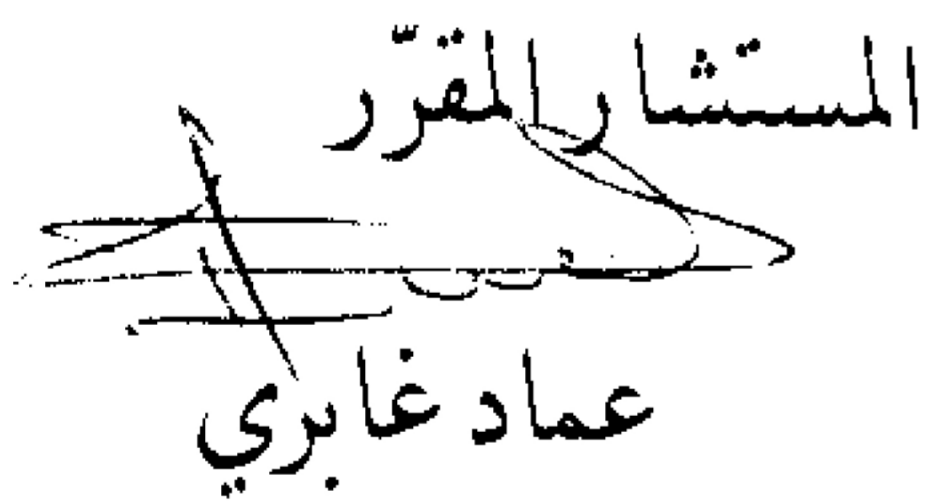 المستشار المقرّر
عماد غابري